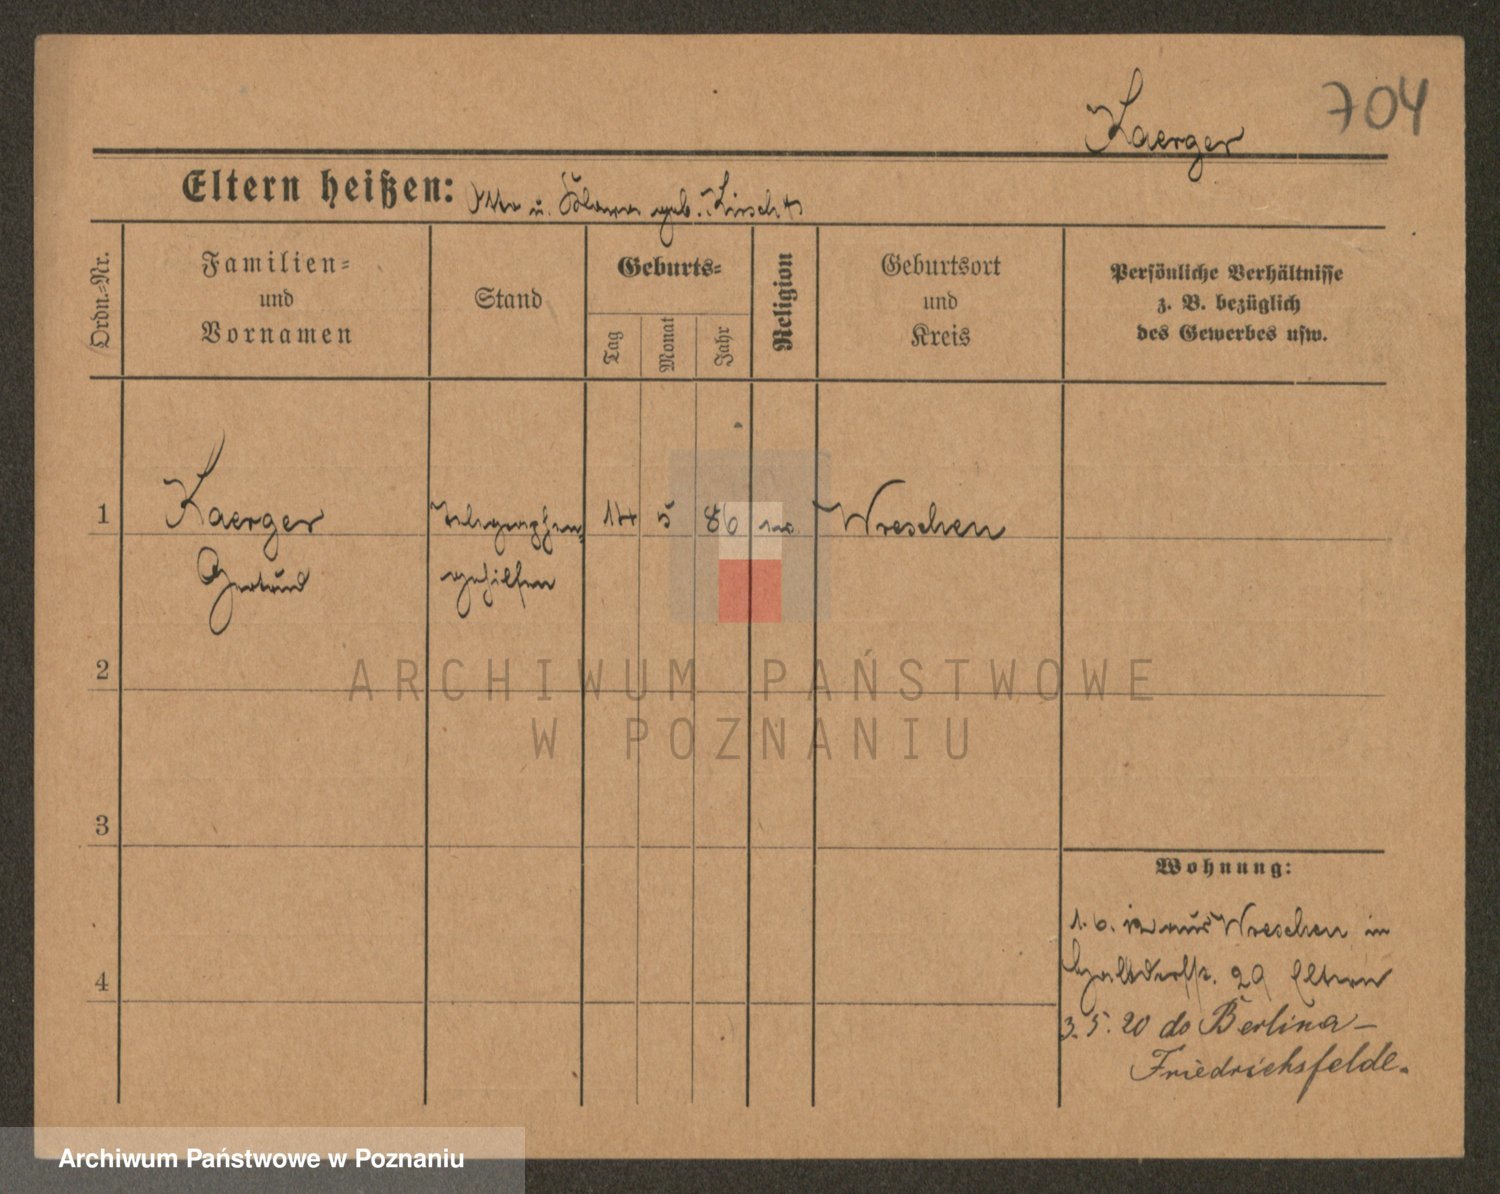 704
Kaerger
Eltern heißen: Otto u. Klara geb. Kirsch
Ordn.-Nr.
Familien-
und
Vornamen
Stand
Geburts-
Tag
Monat
Jahr
Religion
Geburtsort
und
Kreis
Persönliche Verhältnisse
z. B. bezüglich
des Gewerbes usw.
1 Kaerger Telegraphen 14 5 86 Wreschen
Gertrud gehilfin
2
ARCHIWUM PAŃSTWOWE
W POZNANIU
3
4
Wohnung:
1. 6. 12 aus Wreschen in
29 Eltern
3. 5. 20 do Berlin a-
Friedrichsfelde.
Archiwum Państwowe w Poznaniu